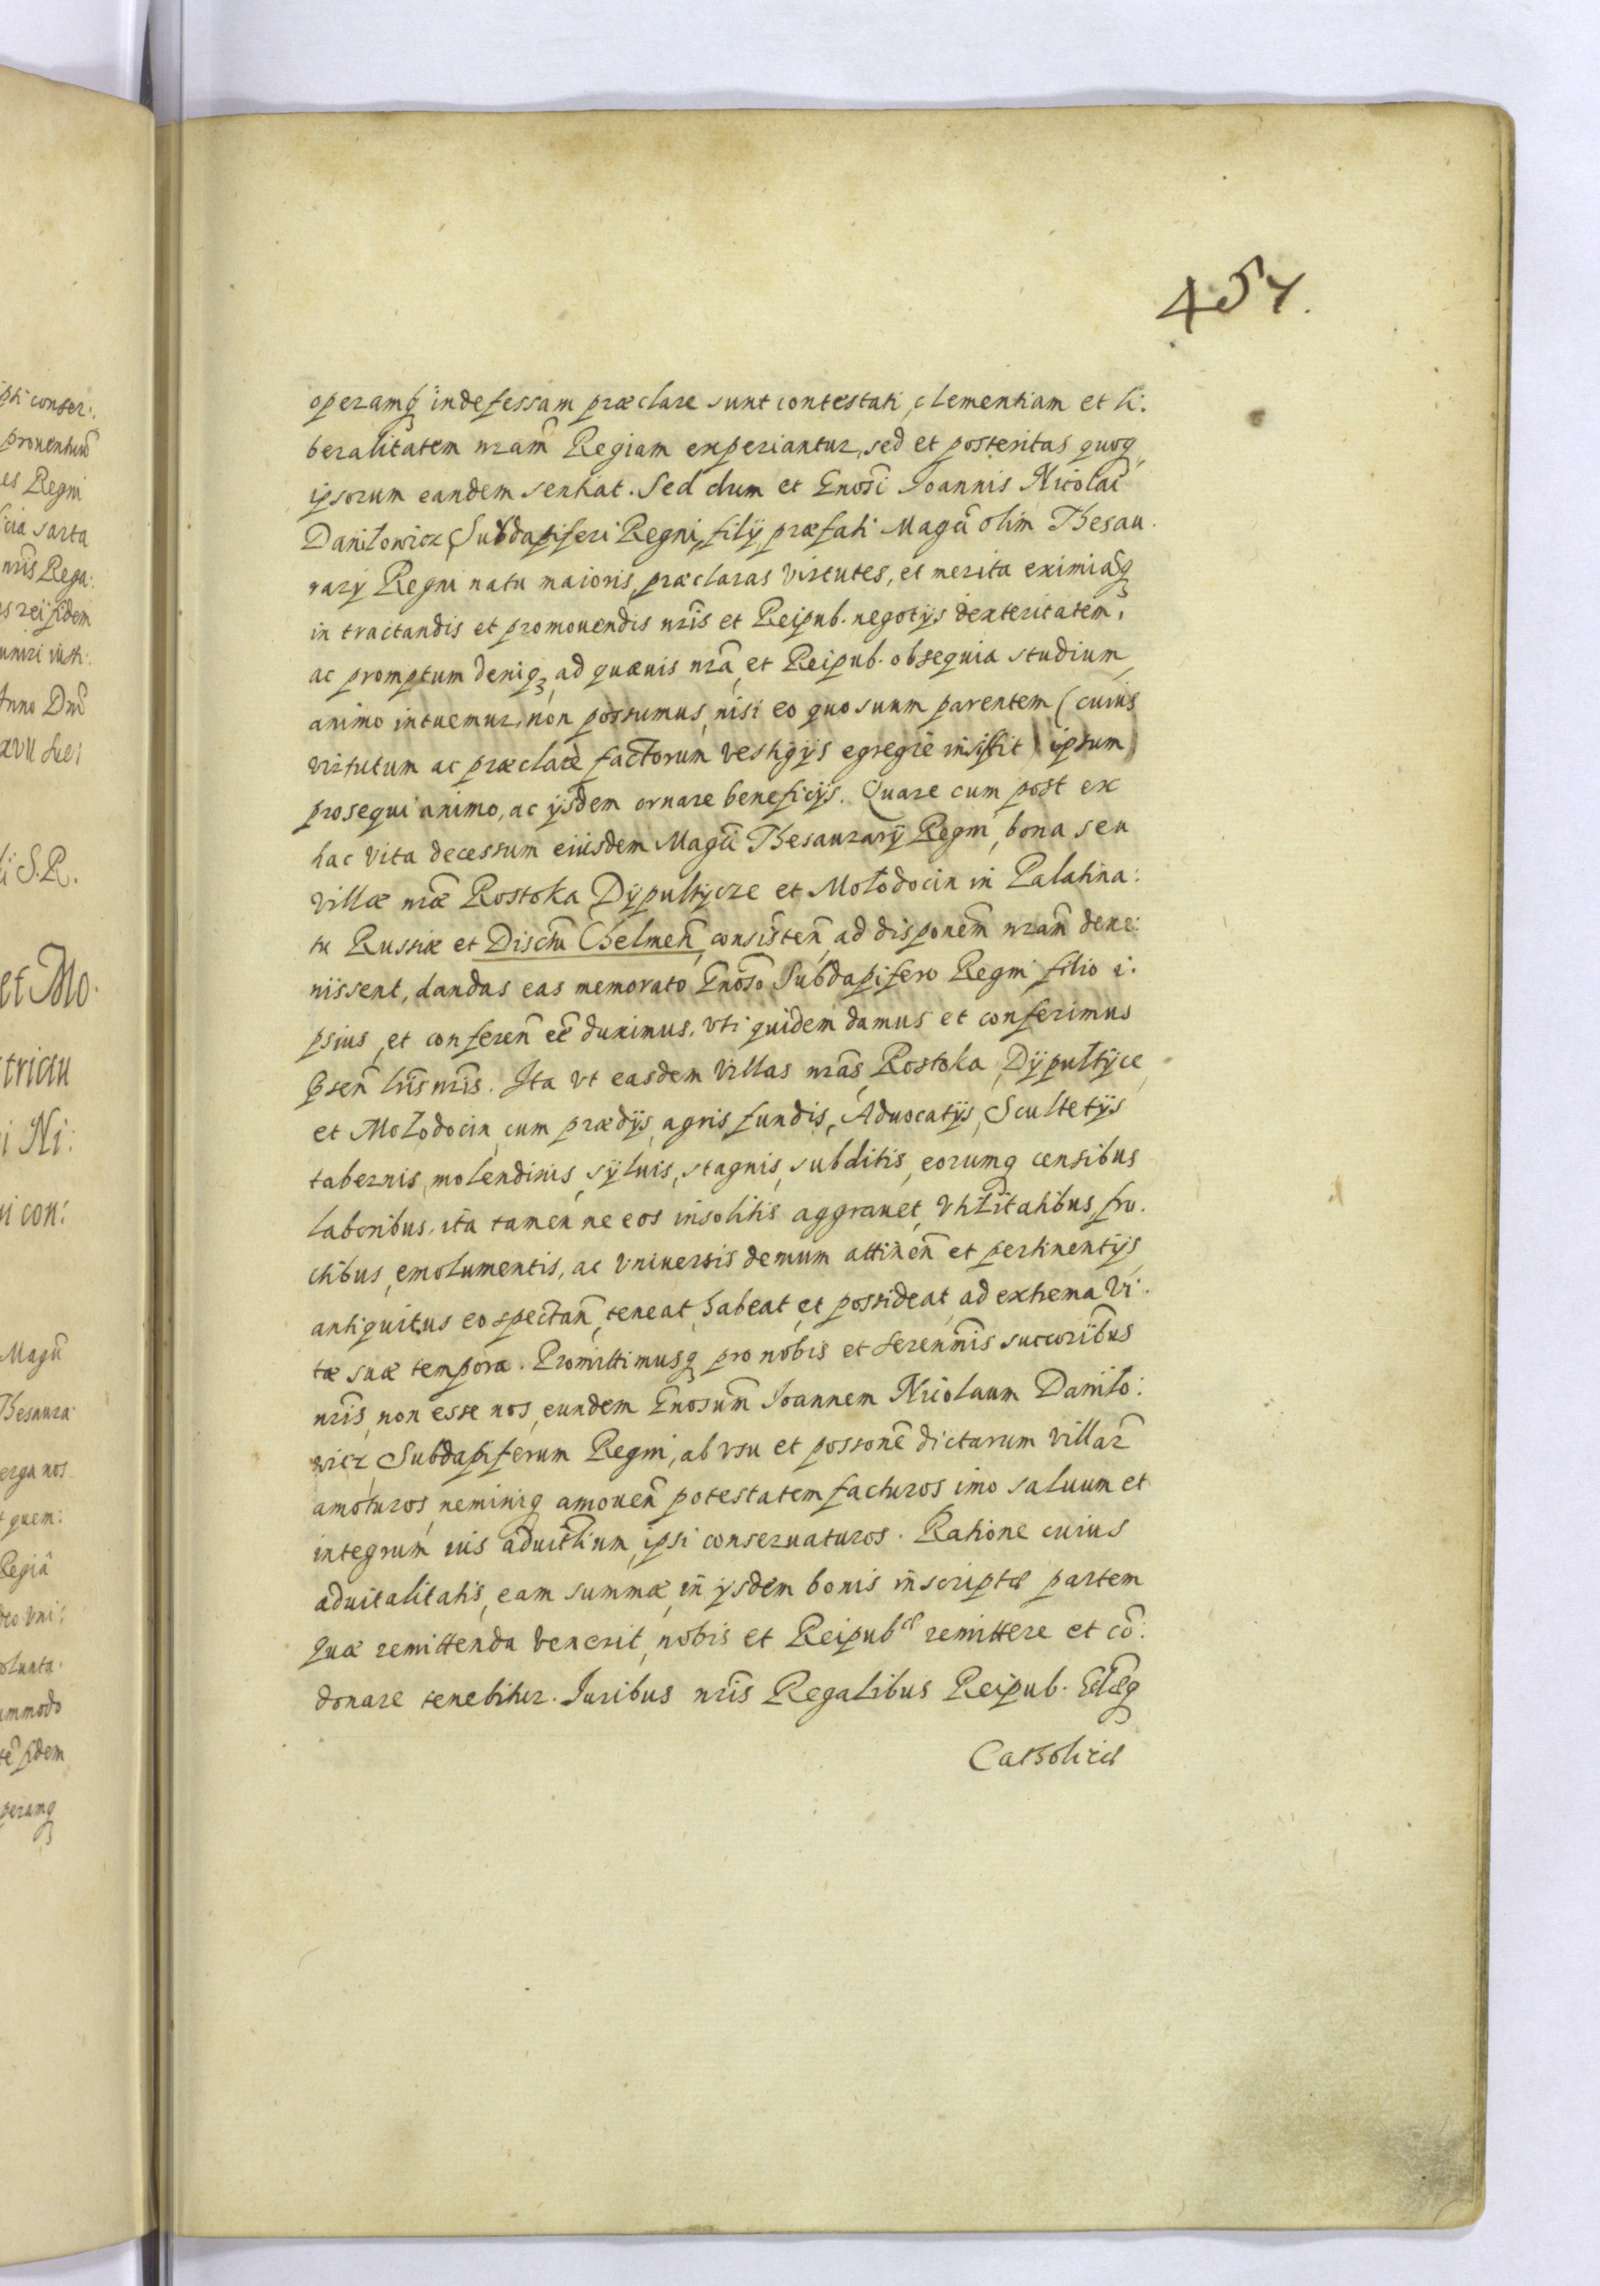 457.
operamq̃ indefessam præclare sunt contestati, clementiam et li:
beralitatem nr̃am Regiam experiantur, sed et posteritas quoq
ipsorum eandem sentiat. Sed dum et Gñosi Joannis Nicolai
Daniłowicz Subdapiferi Regni, filÿ præfati Magci olim Thesau
rarÿ Regni natu maioris, præclaras virtutes, et merita eximiãq
in tractandis et promouendis nr̃is et Reipub. negotÿs dexteritatem,
ac promptum deniq, ad quæuis nr̃a, et Reipub. obsequia studium,
animo intuemur, non possumus, nisi eo quo suum parentem (cuius
virtutum ac præclarè factorum vestigÿs egregiè insistit) ipsum
prosequi animo, ac ÿsdem ornare beneficÿs. Quare cum post ex
hac vita decessum eiusdem Magci Thesaurarÿ Regni, bona seu
villæ nr̃æ Rostoka Dÿpultÿcze et Mołodocin in Palatina:
tu Russiæ et Disctu Chelmeñ, consisteñ, ad disponem̃ nr̃am deue:
nissent, dandas eas memorato Gñoso Subdapifero Regni filio i:
psius, et confereñ eẽ duximus, vti quidem damus et conferimus
p̃señ lr̃is nr̃is. Ita vt easdem villas nr̃as, Rostoka, Dÿpultÿce,
et Mołodocin, cum prædÿs, agris, fundis, Aduocatÿs, Scultetÿs
tabernis, molendinis, sÿluis, stagnis, subditis, eorumq censibus
laboribus, ita tamen ne eos insolitis aggrauet, vtilitatibus, fru:
ctibus, emolumentis, ac vniuersis demum attineñ et pertinentÿs
antiquitus eo spectañ, teneat, habeat, et, possideat, ad extrema vi:
tæ suæ tempora. Promittimusq pro nobis et serenm̃is succorĩbus
nr̃is, non esse nos, eundem Gñosum Joannem Nicolaum Daniło:
wicz Subdapiferum Regni, ab vsu et possonẽ dictarum villar̃
amoturos, neminiq amoueñ potestatem facturos imo saluum et
integrum ius aduitĩum, ipsi conseruaturos. Ratione cuius
aduitalitatis, eam summæ, in ÿsdem bonis inscriptæ partem
quæ remittenda venerit, nobis et Reipubcæ remittere et cõ:
donare tenebitur. Iuribus nr̃is Regalibus Reipub. Ecclæq
Catholicæ